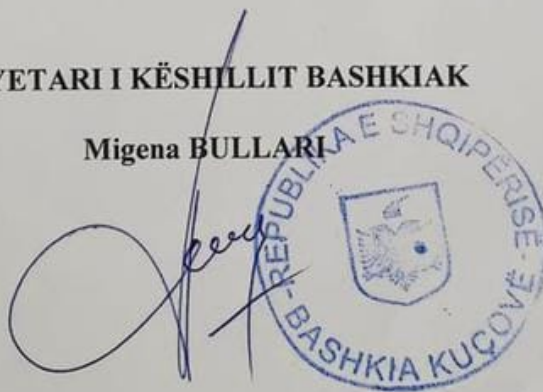 YETARI I KËSHILLIT BASHKIAK
Migena BULLARI
REPUBLIKA E SHQIPËRISË - BASHKIA KUÇOVË -